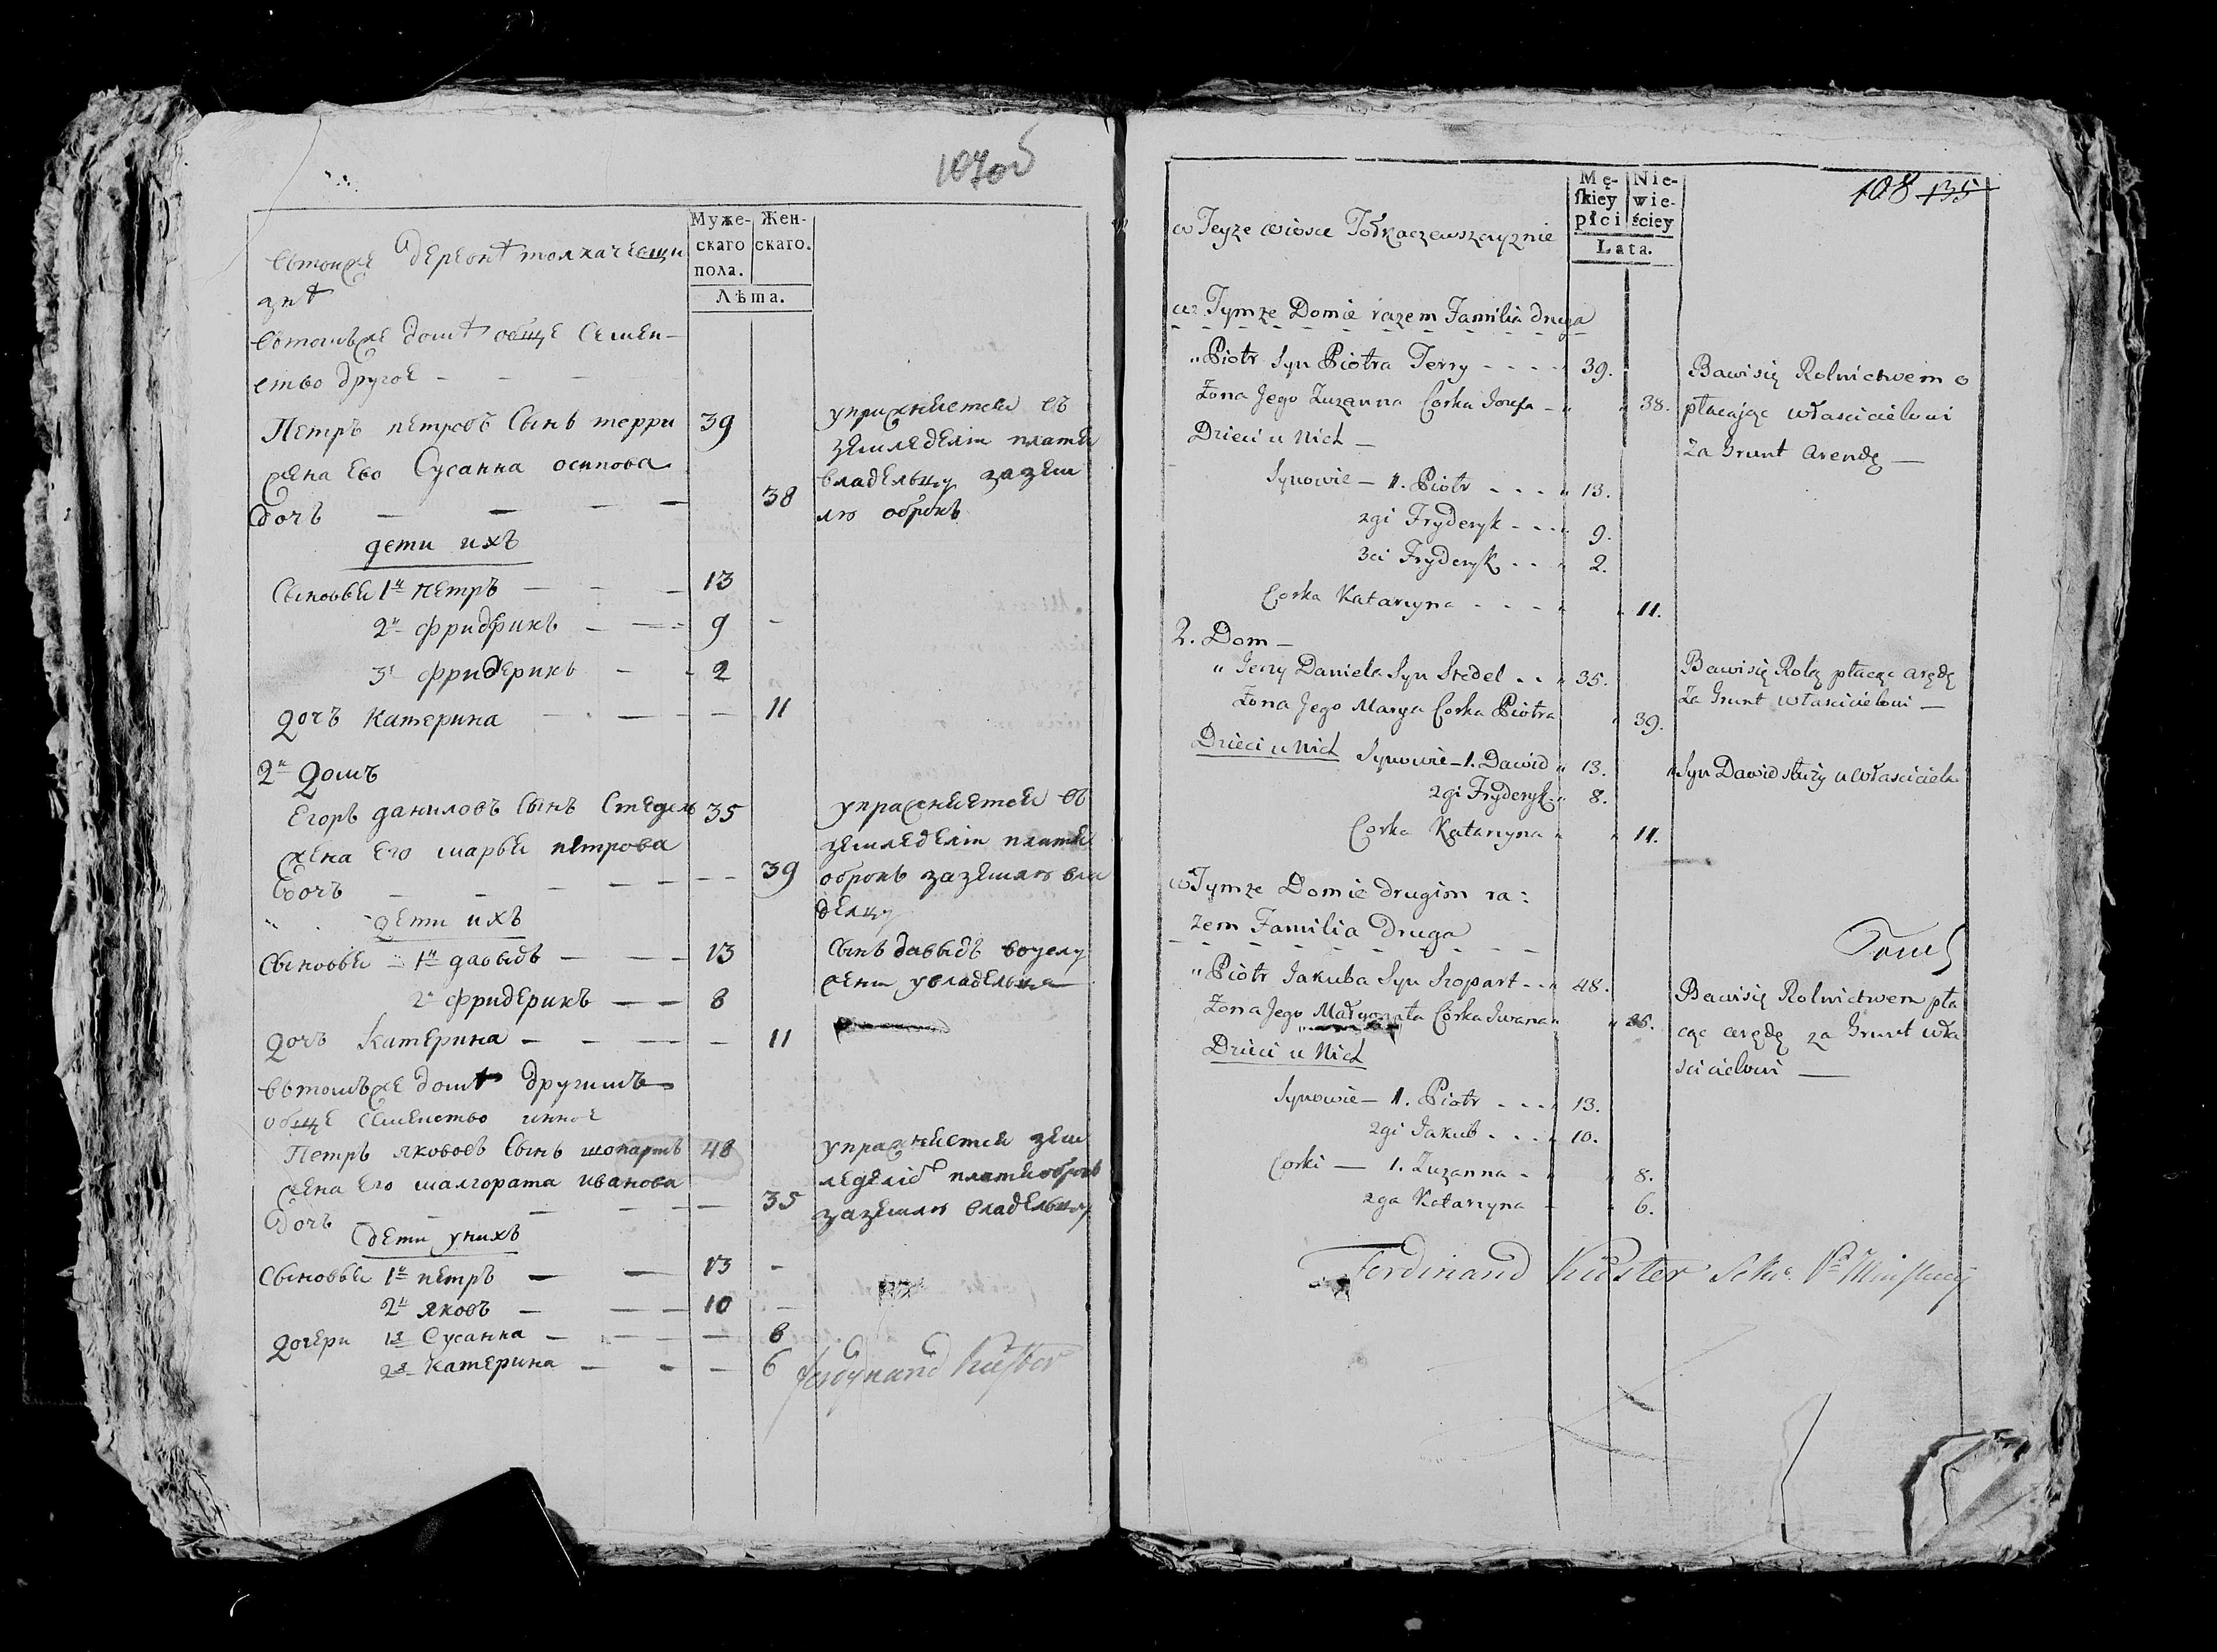 107об
Муже-
скаго
пола.
Жен-
скаго.
Лѣта.
втойже деревнѣ толкачевщи
знѣ
втомъже домѣ обще Семей-
ство другое - - -
Петръ петровъ Сынъ терри 39
жена Ево Сусанна осипова
дочь — — — — 38
упражняется въ
земледелии платя
владельцу за зем
лю оброкъ
дети ихъ
Сыновья 1й петръ — - - 13
2й фридрикъ — — - 9 -
3й фридерикъ - - 2
дочь Катерина - - — — 11
2й домъ
Егоръ даниловъ Сынъ Стедель 35
жена Его марья петрова
дочь — - - - — — 39
упражняется въ
земледелии платя
оброкъ за землю вла
дельцу
дети ихъ
Сыновья - 1й давыдъ — - — 13
2й фридерикъ — — 8
дочь Катерина — - — — 11
Сынъ давыдъ воуслу
жении увладельца
втомъже домѣ другимъ
обще семейство инное
Петръ якововъ Сынъ шопартъ 48
жена Его малгората иванова
дочь - - - - — 35
упражняется зем
леделие платя оброкъ
за землю владельцу
дети унихъ
Сыновья 1й петръ — — 13 -
2й яковъ — — — 10 —
дочери 1я Сусанна — - — — 8
2я Катерина — - — 6
Ferdynand Küster
108 135
Mę-
ſkiey
płci
Nie-
wie-
ściey
Lata.
w Teyże wiosce Tołkaczewszczyznie
w Tymże Domie razem Familia druga
„ Piotr Syn Piotra Terry - - - - 39.
Żona Jego Zuzanna Corka Jozefa - „ „ 38.
Dzieci u Nich —
Bawi się Rolnictwem o
płacając właścicielowi
za Grunt Arendę —
Synowie — 1. Piotr - - - „ 13.
2gi Fryderyk - - - „ 9.
3ci Fryderyk - - „ 2.
Corka Katarzyna - - - - „ „ 11.
2. Dom —
„ Jerzy Daniela Syn Stedel - - „ 35.
Żona Jego Marya Corka Piotra „ 39.
Bawi się Rolą płacąc arędę
za Grunt właścicielowi —
Dzieci u Nich Synowie — 1. Dawid „ 13.
2gi Fryderyk - „ 8.
Corka Katarzyna „ „ 11.
„ Syn Dawid służy u właściciela
w Tymże Domie drugim ra:
zem Familia Druga
„ Piotr Jakuba Syn Szopart - - „ 48.
Żona Jego Małgorzata Córka Iwana „ „ 35.
Dzieci u Nich
Bawi się Rolnictwem pła
cąc arędę za Grunt wła
ścicielowi —
Synowie — 1. Piotr - - - „ 13.
2gi Jakub - - - „ 10.
Corki — 1. Zuzanna - „ „ 8.
2ga Katarzyna - „ 6.
Ferdinand Küster